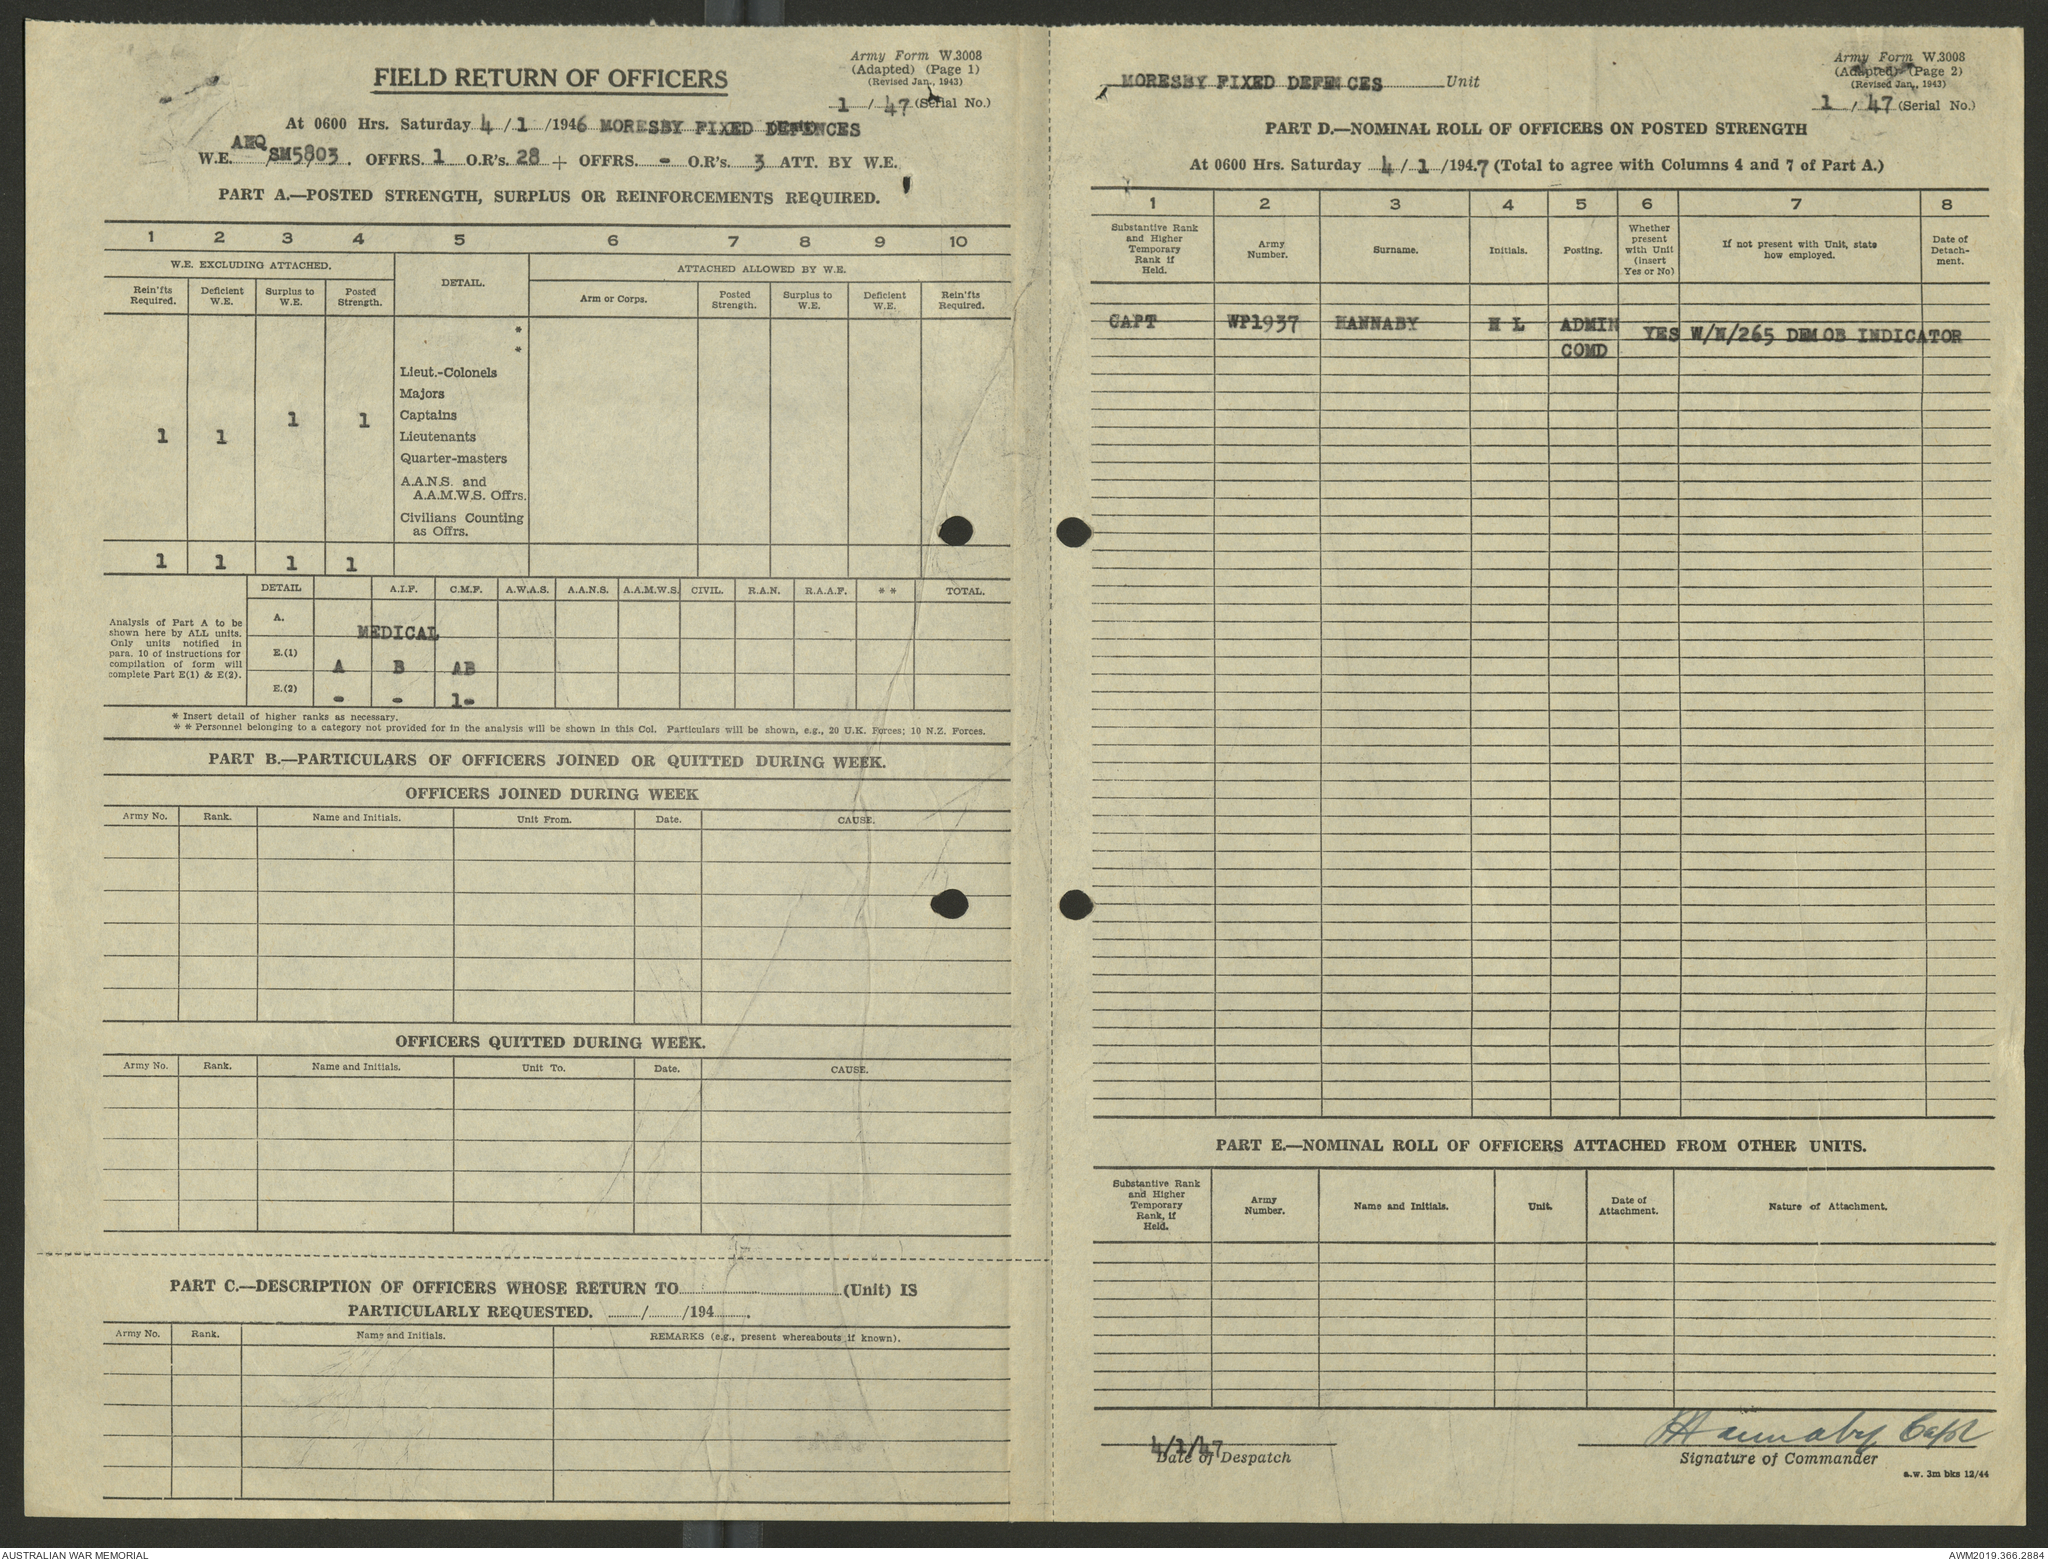 Army Form W.3008
(Adapted) (Page 1)
(Revised Jan., 1943)
1 / 47 (Serial No.)
FIELD RETURN OF OFFICERS
At 0600 Hrs. Saturday 4 / 1 /1946 MORESBY FIXED DEFENCES
W.E. AHQ/SM5803. OFFRS. 1 O.R's. 28 + OFFRS. - O.R's. 3 ATT. BY W.E.
PART A.—POSTED STRENGTH, SURPLUS OR REINFORCEMENTS REQUIRED.
1 2 3 4 5 6 7 8 9 10
W.E. EXCLUDING ATTACHED. DETAIL. ATTACHED ALLOWED BY W.E.
Rein'fts Required. Deficient W.E. Surplus to W.E. Posted Strength. Arm or Corps. Posted Strength. Surplus to W.E. Deficient W.E. Rein'fts Required.
*
*
Lieut.-Colonels
Majors
1 1 Captains
1 1 Lieutenants
Quarter-masters
A.A.N.S. and
A.A.M.W.S. Offrs.
Civilians Counting
as Offrs.
1 1 1 1
DETAIL A.I.F. C.M.F. A.W.A.S. A.A.N.S. A.A.M.W.S. CIVIL. R.A.N. R.A.A.F. * * TOTAL.
Analysis of Part A to be
shown here by ALL units.
Only units notified in
para. 10 of instructions for
compilation of form will
complete Part E(1) & E(2).
A.
MEDICAL
E.(1)
A B AB
E.(2)
- - 1-
* Insert detail of higher ranks as necessary.
* * Personnel belonging to a category not provided for in the analysis will be shown in this Col. Particulars will be shown, e.g., 20 U.K. Forces; 10 N.Z. Forces.
PART B.—PARTICULARS OF OFFICERS JOINED OR QUITTED DURING WEEK.
OFFICERS JOINED DURING WEEK
Army No. Rank. Name and Initials. Unit From. Date. CAUSE.
OFFICERS QUITTED DURING WEEK.
Army No. Rank. Name and Initials. Unit To. Date. CAUSE.
PART C.—DESCRIPTION OF OFFICERS WHOSE RETURN TO (Unit) IS
PARTICULARLY REQUESTED. / /194 .
Army No. Rank. Name and Initials. REMARKS (e.g., present whereabouts if known).
Army Form W.3008
(Adapted) (Page 2)
(Revised Jan., 1943)
1 / 47 (Serial No.)
MORESBY FIXED DEFENCES Unit
PART D.—NOMINAL ROLL OF OFFICERS ON POSTED STRENGTH
At 0600 Hrs. Saturday 4 / 1 /1947 (Total to agree with Columns 4 and 7 of Part A.)
1 2 3 4 5 6 7 8
Substantive Rank and Higher Temporary Rank if Held. Army Number. Surname. Initials. Posting. Whether present with Unit (insert Yes or No) If not present with Unit, state how employed. Date of Detach-ment.
CAPT WP1937 HANNABY H L ADMIN YES W/N/265 DEMOB INDICATOR
COMD
PART E.—NOMINAL ROLL OF OFFICERS ATTACHED FROM OTHER UNITS.
Substantive Rank and Higher Temporary Rank, if Held. Army Number. Name and Initials. Unit. Date of Attachment. Nature of Attachment.
4/1/47
Date of Despatch
HHannaby Capt
Signature of Commander
a.w. 3m bks 12/44
AUSTRALIAN WAR MEMORIAL
AWM2019.366.2884